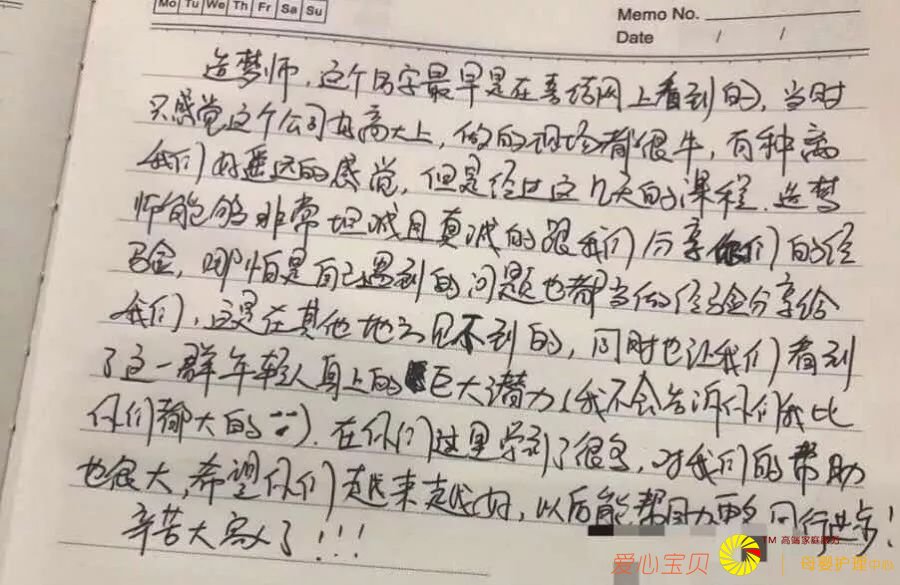 Mo Tu We Th Fr Sa Su
Memo No.
Date / /
造梦师，这个名字最早是在喜结网上看到的，当时
只感觉这个公司好高大上，做的现场都很牛，有种离
我们好遥远的感觉，但是经过这几天的课程，造梦
师能够非常坦诚且真诚的跟我们分享他们的经
验，哪怕是自己遇到的问题也都当做经验分享给
我们，这是在其他地方见不到的，同时也让我们看到
了这一群年轻人身上的巨大潜力（我不会告诉你们我比
你们都大的）. 在你们这里学到了很多，对我们的帮助
也很大，希望你们越来越好，以后能帮助更多同行进步！
辛苦大家了！！！
爱心宝贝
TM 高端家庭服务
母婴护理中心